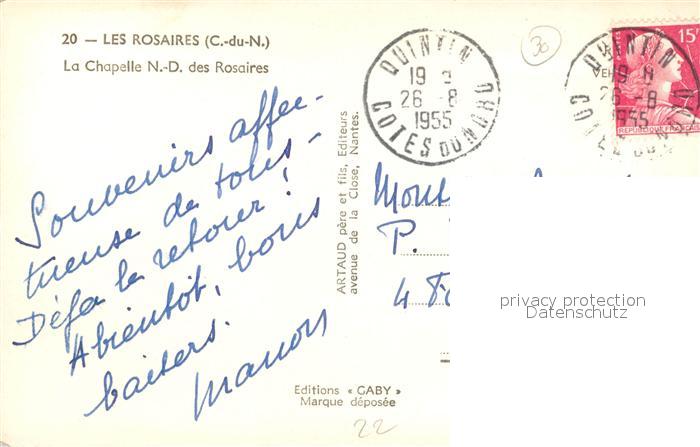 20 — LES ROSAIRES (C.-du-N.)
La Chapelle N.-D. des Rosaires
Souvenirs affec-
tueuse de tous -
Déjà le retour !
A bientôt, bons
baisers.
Manon
ARTAUD père et fils, Editeurs
avenue de la Close, Nantes.
Editions « GABY »
Marque déposée
22
30
QUINTIN
19 H
26 - 8
1955
COTES DU NORD
QUINTIN
19 H
26 - 8
1955
15F
REPUBLIQUE FRANÇAISE
P.
48
privacy protection
Datenschutz